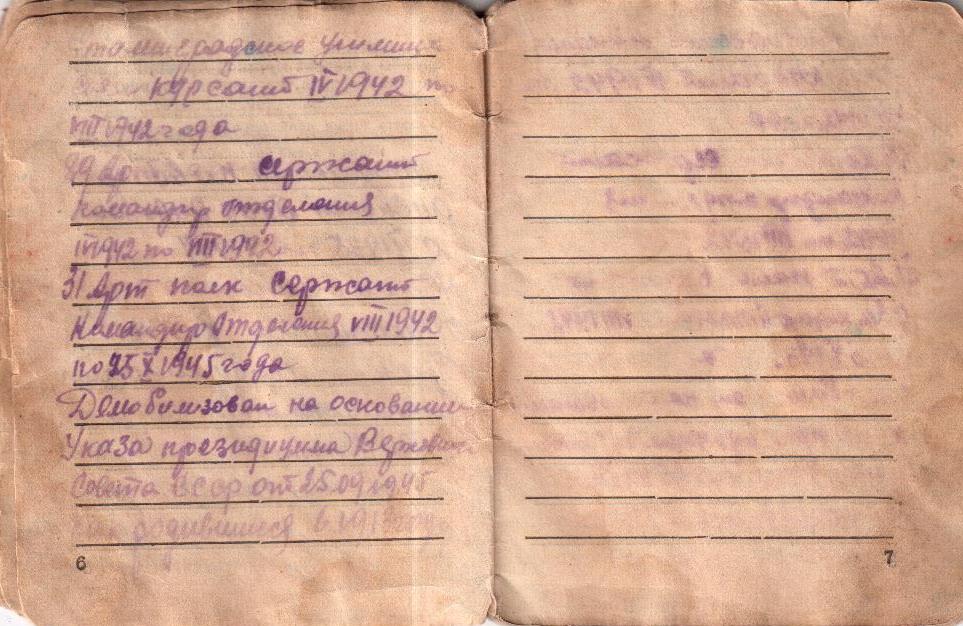 училище
курсант IV 1942 по
VIII 1942 года
Арт сержант
Командир отделения
IV 1942 по VIII 1942
31 Арт полк Сержант
Командир Отделения VIII 1942
по 25 X 1945 года
Демобилизован на основании
Указа президиума Верховного
Совета СССР от 25.09.1945
родившийся в
6
7